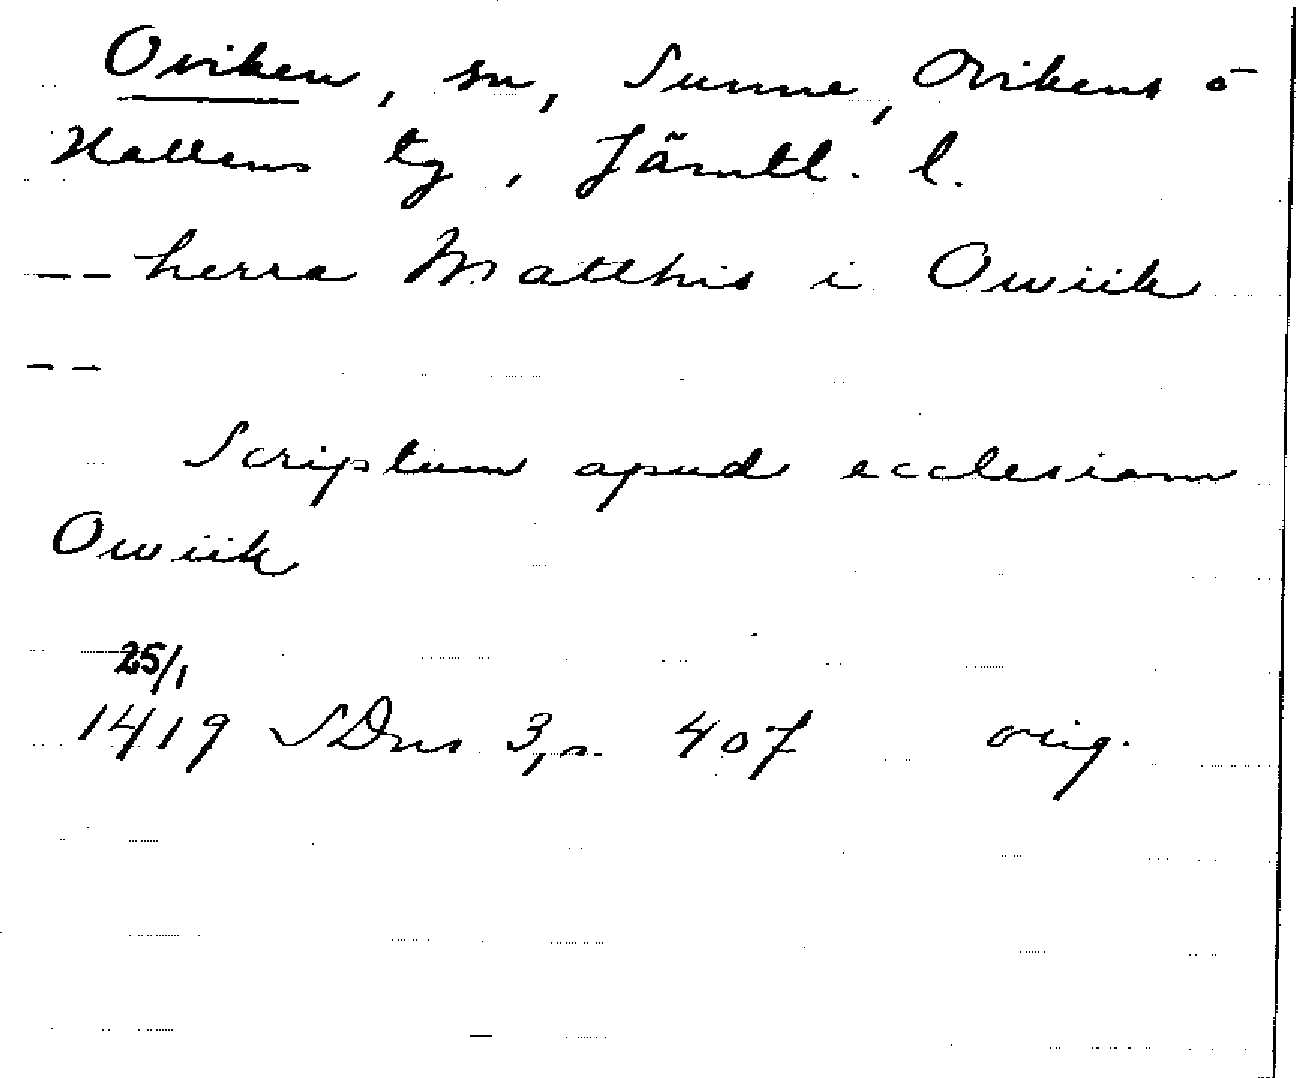 Oviken, sn, Sunne, Ovikens o
Hallens tg, Jämtl. l.
-- herra Matthis i Owiik
--
Scriptum apud ecclesiam
Owiik
25/1
1419 SDns 3, s. 407 orig.